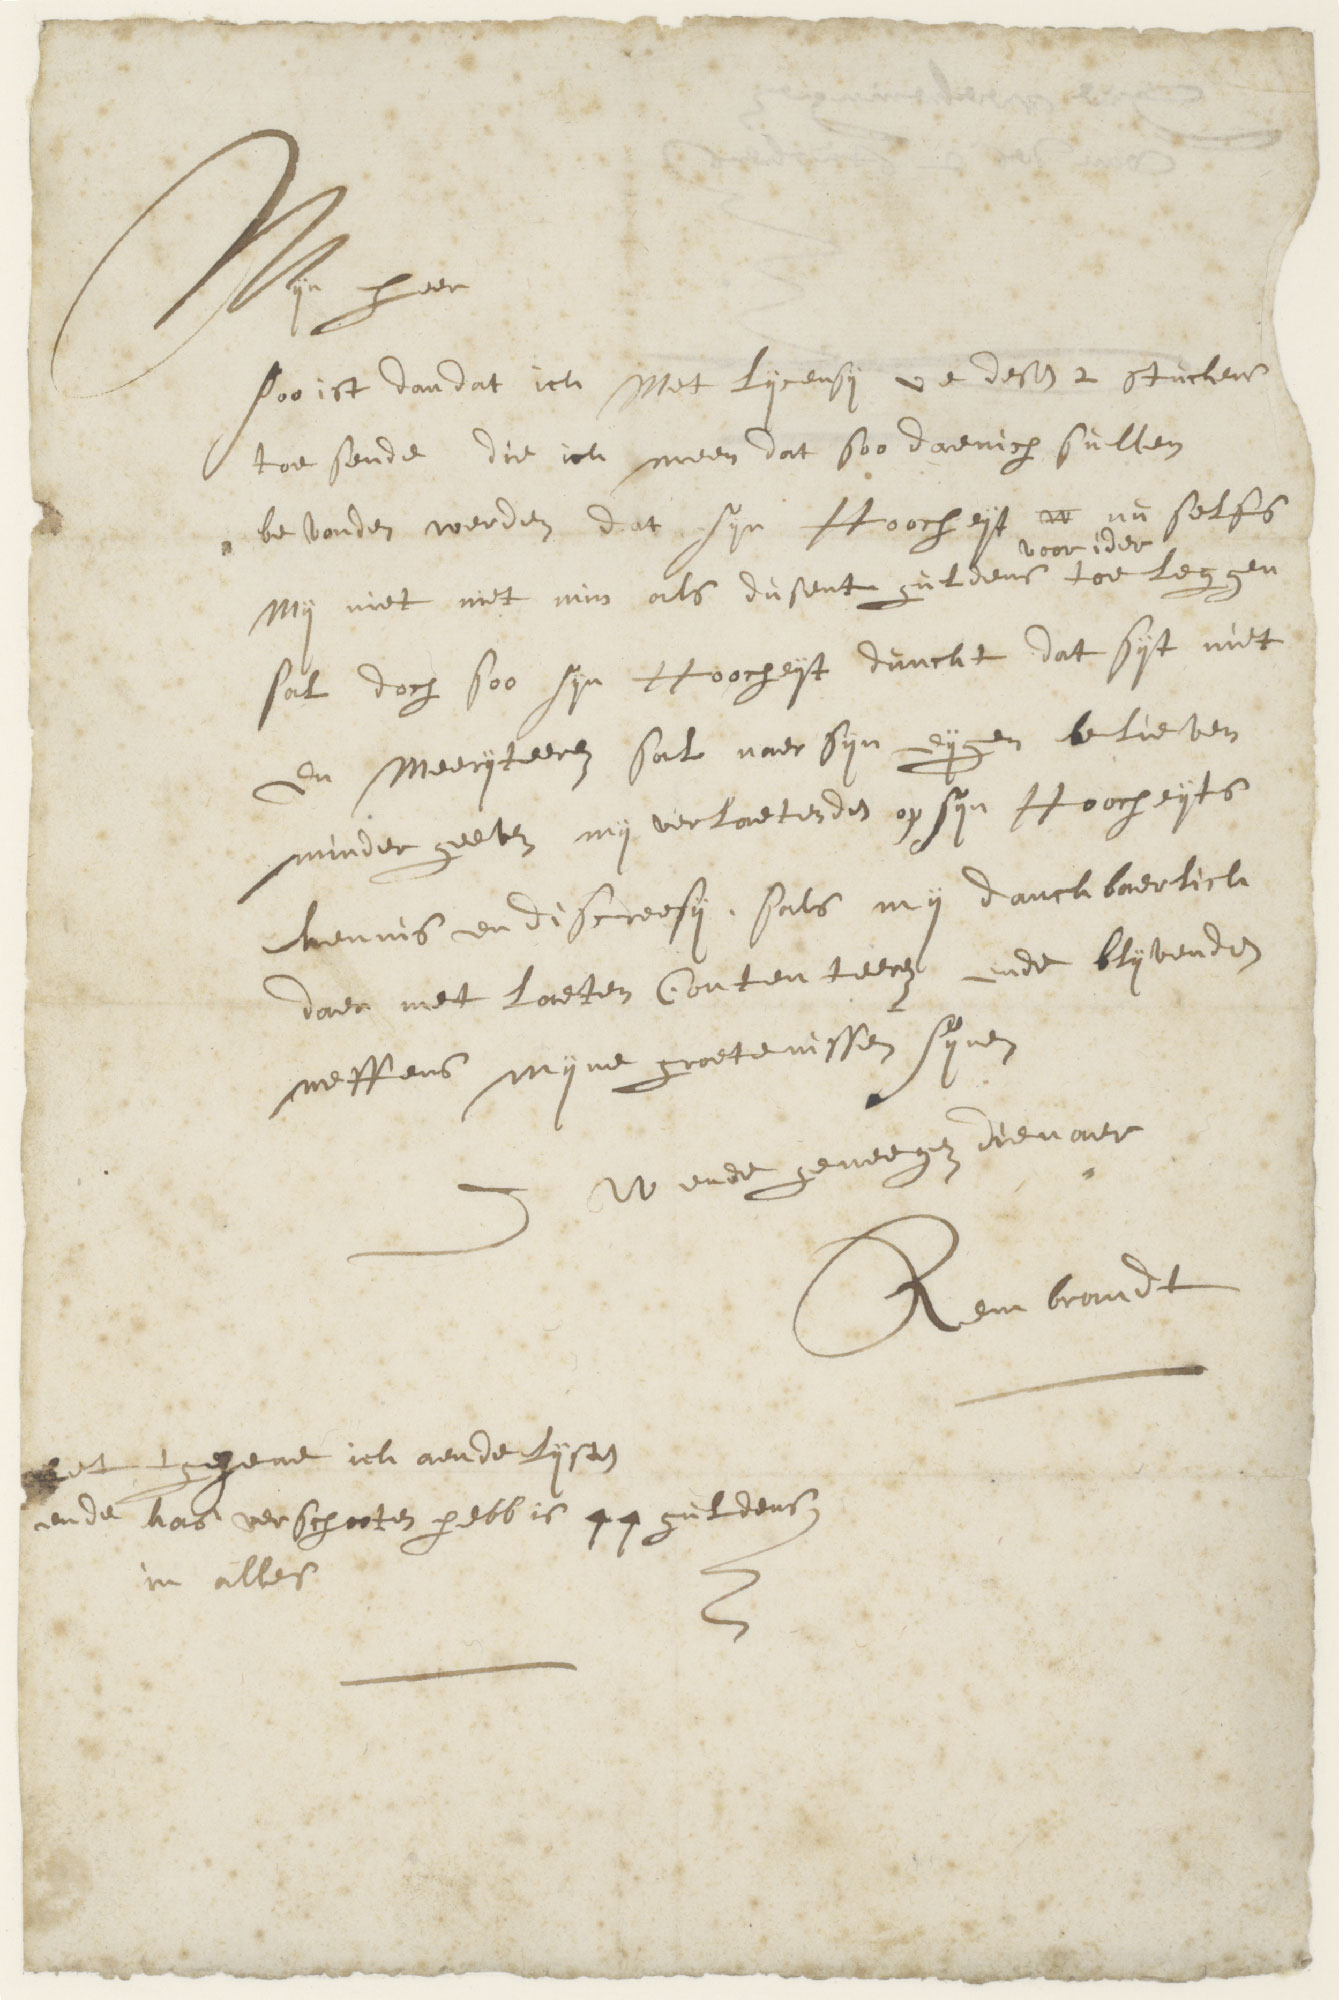 Mijn heer
Soo ist dan dat ick met lijcensij ue dese 2 stucken
toe sende die ick meen dat soo daenich sullen
bevonden werden dat sijn Hoocheijt nu selfs
voor ider
mij niet met min als dusent guldens toe leggen
sal doch soo sijn Hoocheijt dunckt dat sijt niet
en meerijteeren sal naer sijn eijgen believen
minder geeven mij verlaetende op sijn Hoocheijts
kennis en discreesij. sals mij danckbaerlick
daer met laeten Contenteeren ende blijvenden
neffens mijne groetenissen sijnen
W ende geneegen dienaer
Rembrandt
het tgeene ick aende lijsten
ende kas verschooten hebb is 44 guldens
in alles